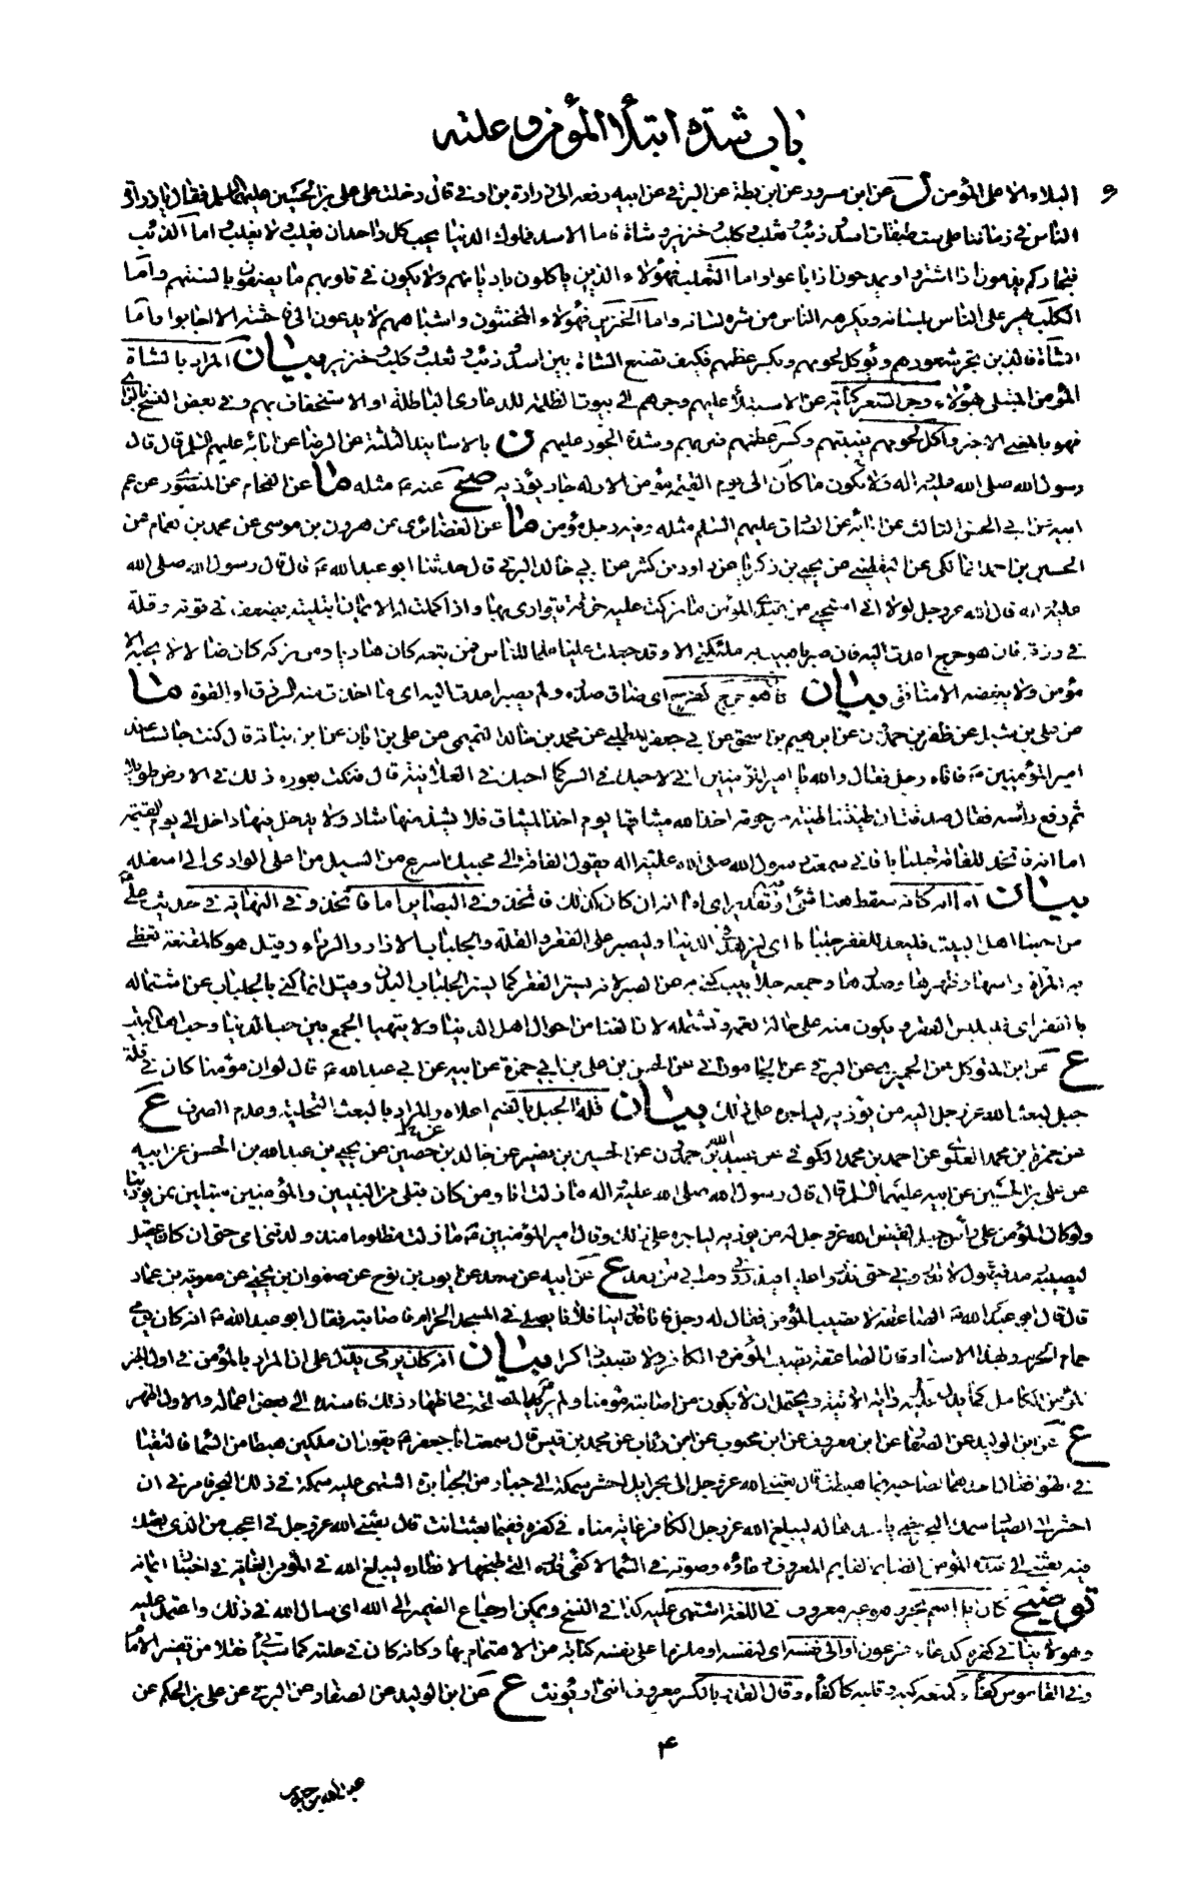 باب شدة ابتلاء المؤمن وعلته
البلاء الا على المؤمن ل عن ابن مسرور عن ابن بطة عن البرقي عن ابيه رفعه الى زرارة بن اوفى قال دخلت على علي بن الحسين عليهما السلام فقال يا زرارة
الناس في زماننا على ست طبقات اسد وذئب وثعلب وكلب وخنزير وشاة فاما الاسد فملوك الدنيا يحب كل واحد ان يغلب ولا يغلب واما الذئب
فتجاركم يذمون اذا اشتروا ويمدحون اذا باعوا واما الثعلب فهؤلاء الذين ياكلون باديانهم ولا يكون في قلوبهم ما يصفون بالسنتهم واما
الكلب يهر على الناس بلسانه ويكرهه الناس من شره لسانه واما الخنزير فهؤلاء المخنثون واشباههم لا يدعون الى فاحشة الا اجابوا واما
الشاة فالذين تجر شعورهم ويؤكل لحومهم ويكسر عظمهم فكيف تصنع الشاة بين اسد وذئب وثعلب وكلب وخنزير بيان المراد بالشاة
المؤمن المبتلى بهؤلاء وجز الشعر كناية عن الاستيلاء عليهم وجرهم الى بيوت الظلمة للدعاوي الباطلة او الاستخفاف بهم وفي بعض النسخ بالزاي
فهو بالمعنى الاخير واكل لحومهم بغيبتهم وكسر عظمهم ضربهم وشدة الجور عليهم ن بالاسانيد الثلثة عن الرضا عن ابائه عليهم السلم قال قال
رسول الله صلى الله عليه واله ولا يكون ما كان الى يوم القيمة مؤمن الا وله جار يؤذيه صح عنه ع مثله ما عن الفحام عن المنصوري عن عم
ابيه عن ابي الحسن الثالث عن ابائه عن الصادق عليهم السلم مثله وفيه رجل مؤمن ما عن الغضائري عن هرون بن موسى عن محمد بن همام عن
الحسين بن احمد المالكي عن اليقطيني عن يحيى بن زكريا عن داود بن كثير عن ابي خالد البرقي قال حدثنا ابو عبد الله ع قال قال رسول الله صلى الله
عليه واله قال الله عز وجل لولا اني استحيي من عبدي المؤمن ما تركت عليه خرقة يتوارى بها واذا اكملت له الايمان ابتليته بضعف في قوته وقلة
في رزقه فان هو حرج اعدت اليه فان صبر باهيت به ملئكتي الا وقد جعلت عليا علما للناس فمن تبعه كان هاديا ومن تركه كان ضالا لا يحبه الا
مؤمن ولا يبغضه الا منافق بيان فان هو حرج كفرح اي ضاق صدره ولم يصبر اعدت اليه اي ما اخذت منه الرزق او القوة ما
عن علي بن شبل عن ظفر بن حمدون عن ابرهيم بن اسحق عن محمد بن خالد التميمي عن علي بن ابان عن ابن نباتة قال كنت جالسا عند
امير المؤمنين ع فاتاه رجل فقال والله يا امير المؤمنين اني لاحبك في السر كما احبك في العلانية قال فنكت بعوده ذلك في الارض طويلا
ثم رفع راسه فقال صدقت ان طينتنا طينة مرحومة اخذ الله ميثاقها يوم اخذ الميثاق فلا يشذ منها شاذ ولا يدخل فيها داخل الى يوم القيمة
اما انه فاتخذ للفاقة جلبابا فاني سمعت رسول الله صلى الله عليه واله يقول الفاقة الى محبيك اسرع من السيل من اعلى الوادي الى اسفله
بيان اما انه كانه سقط هنا شيء او فيه تقدير اي اما انه ان كان كذلك فاتخذ وفي البصائر اما فاتخذ وفي النهاية في حديث علي ع
من احبنا اهل البيت فليعد للفقر جلبابا اي ليزهد في الدنيا وليصبر على الفقر والقلة والجلباب الازار والرداء وقيل هو كالمقنعة تغطي
به المراة راسها وظهرها وصدرها وجمعه جلابيب كنى به عن الصبر لانه يستر الفقر كما يستر الجلباب البدن وقيل انما كنى بالجلباب عن اشتماله
بالفقر اي فليلبس الفقر ويكون منه على حالة تعمه وتشمله لان الغنا من احوال اهل الدنيا ولا يتهيا الجمع بين حب الدنيا وحب اهل البيت
ع عن ابن المتوكل عن الحميري عن البرقي عن الجاموراني عن الحسن بن علي بن ابي حمزة عن ابيه عن ابي عبد الله ع قال لو ان مؤمنا كان في قلة
جبل لبعث الله عز وجل اليه من يؤذيه لياجره على ذلك بيان قلة الجبل بالضم اعلاه والمراد بالبعث التخلية وعدم الصرف ع
عن حمزة بن محمد العلوي عن احمد بن محمد الكوفي عن عبيد الله بن حمدون عن الحسين بن نصير عن خالد بن حصين عن يحيى بن عبد الله بن الحسن عن ابيه
عن علي بن الحسين عن ابيه عليهما السلم قال قال رسول الله صلى الله عليه واله ما زلت انا ومن كان قبلي من النبيين والمؤمنين مبتلين بمن يؤذينا
ولو كان المؤمن على راس جبل لقيض الله عز وجل له من يؤذيه لياجره على ذلك وقال امير المؤمنين ع ما زلت مظلوما منذ ولدتني امي حتى ان كان عقيل
ليصيبه رمد فيقول لا تذروني حتى تذروا عليا فيذروني وما بي من رمد ع عن ابيه عن سعد عن ايوب بن نوح عن صفوان بن يحيى عن معوية بن عمار
قال قال ابو عبد الله ع الصاعقة لا تصيب المؤمن فقال له رجل فانا قد راينا فلانا يصلي في المسجد الحرام فاصابته فقال ابو عبد الله ع انه كان يرمي
حمام الحرم وبهذا الاسناد قال الصاعقة تصيب المؤمن والكافر ولا تصيب ذاكرا بيان انه كان يرمي يدل على ان المراد بالمؤمن في اول الخبر
المؤمن الكامل كما يدل عليه روايه الاتية ويحتمل ان لا يكون من اصابته مؤمنا ولم ير المصلحة في اظهار ذلك فاسنده الى بعض اعماله والاول اظهر
ع عن ابن الوليد عن الصفار عن ابن معروف عن ابن محبوب عن ابن رئاب عن محمد بن قيس قال سمعت ابا جعفر ع يقول ان ملكين هبطا من السماء فالتقيا
في الهواء فقال احدهما لصاحبه فيما هبطت قال بعثني الله عز وجل الى بحر ايل احشر سمكة الى جبار من الجبابرة اشتهى عليه سمكة في ذلك البحر فامرني ان
احشر الى الصياد سمك البحر حتى ياخذها له ليبلغ الله عز وجل الكافر غاية مناه في كفره ففيما بعثت انت قال بعثني الله عز وجل في اعجب من الذي بعثك
فيه بعثني الى عبده المؤمن الصائم القايم المعروف دعاؤه وصوته في السماء لاكفي قدره التي طبخها لافطاره ليبلغ الله في المؤمن الغاية في اختبار ايمانه
توضيح كان ايل اسم بحر وهو غير معروف في اللغة اشتهى عليه كذا في النسخ ويمكن ارجاع الضمير الى الله اي سال الله في ذلك واعتمد عليه
وهو لا ينافي كفره كدعاء فرعون او الى نفسه اي لنفسه او ملزما على نفسه كناية عن الاهتمام بها
وفي القاموس كفاه كمنعه كبه وقلبه كاكفاه وقال القدر بالكسر معروف انثى او يؤنث ع عن ابن الوليد عن الصفار عن البرقي عن علي بن الحكم عن
۴